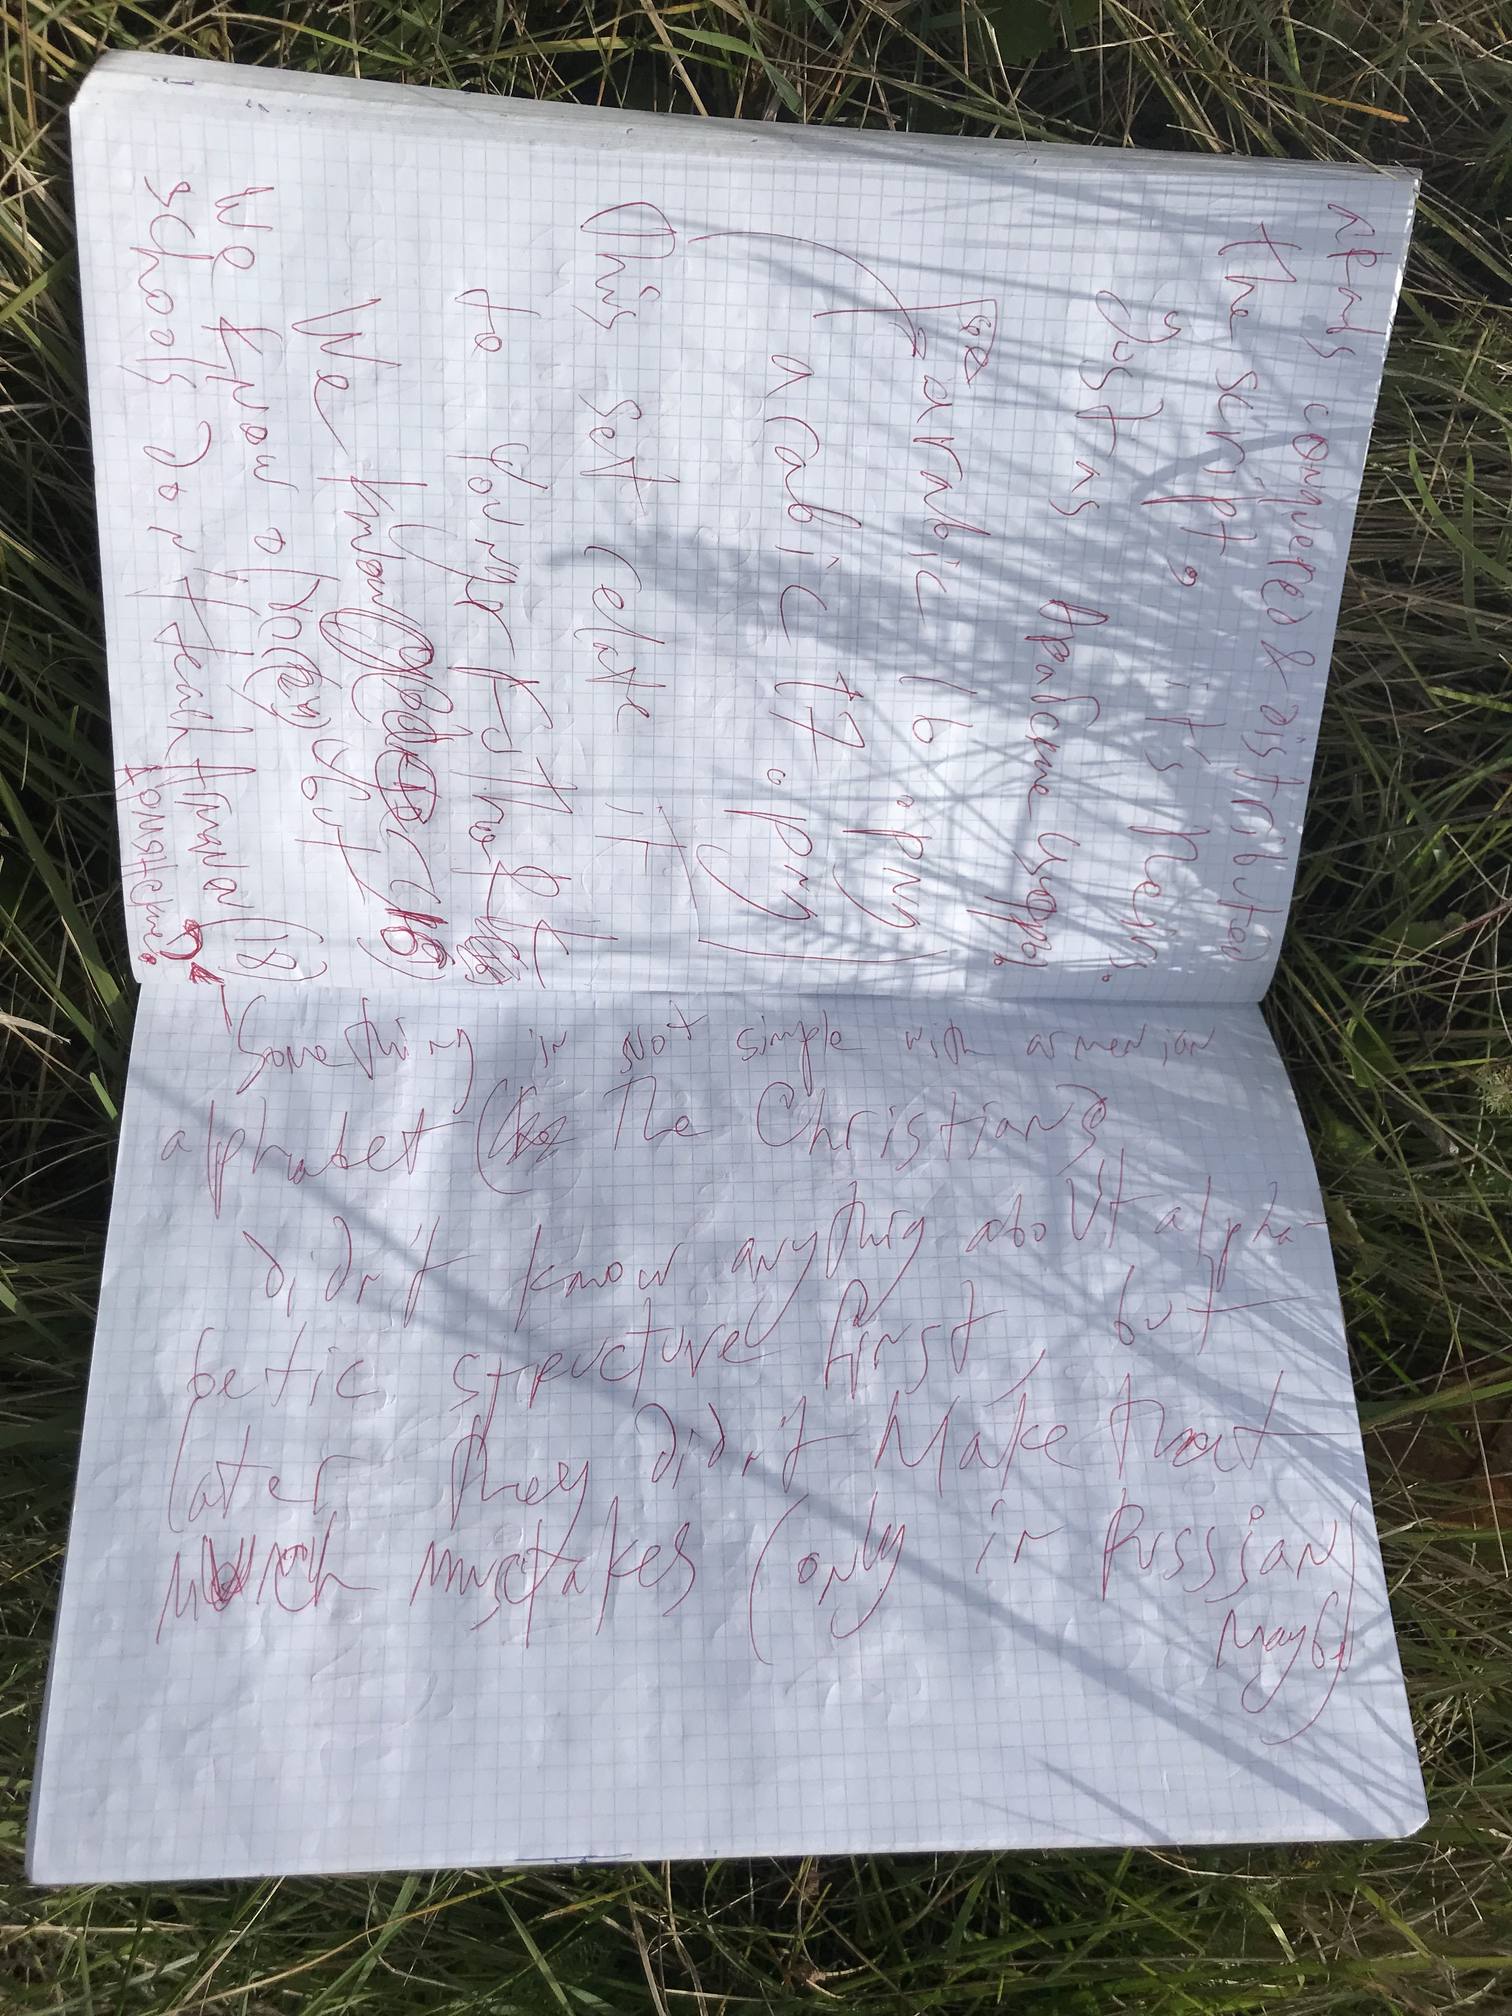 arabs conquered & distributed
the script, it's heirs.
Just as Арабские Узоры.
arabic 16.png
arabic 17.png
This set relate it
to younger Futhark
We know
We know a but
schools don't teach (18)
Something in not simple with armenian
alphabet (The Christians
didn't know anything about alpha-
betic structure first, but
later they didn't make that
much mistakes (only in Russian
maybe)